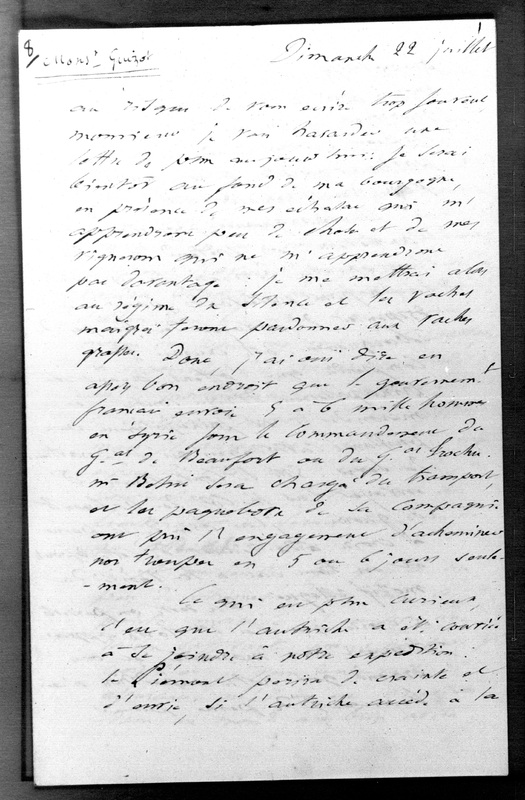 8/ Monsr Guizot
Dimanche 22 juillet
au risque de vous écrire trop souvent,
monsieur je vais hasarder une
lettre de plus aujourd'hui. Je serai
bientôt au fond de ma bourgogne,
en présence de mes échalas qui m'
apprendront peu de chose et de mes
vignerons qui ne m'apprendront
pas davantage : je me mettrai alors
au régime du silence et les vaches
maigres seront pardonnées aux vaches
grasses. Donc, j'ai ouï dire en
assez bon endroit que le gouvernemt
français envoie 5 à 6 mille hommes
en Syrie sous le commandement du
Gal de Beaufort ou du Gal Trochu.
mr Béhic sera chargé du transport,
et les paquebots de sa compagnie
ont pris l'engagement d'acheminer
nos troupes en 5 ou 6 jours seule
-ment.
Ce qui est plus curieux,
c'est que l'autriche a été conviée
à se joindre à notre expédition.
le Piémont périra de crainte et
d'envie, si l'autriche accède à la